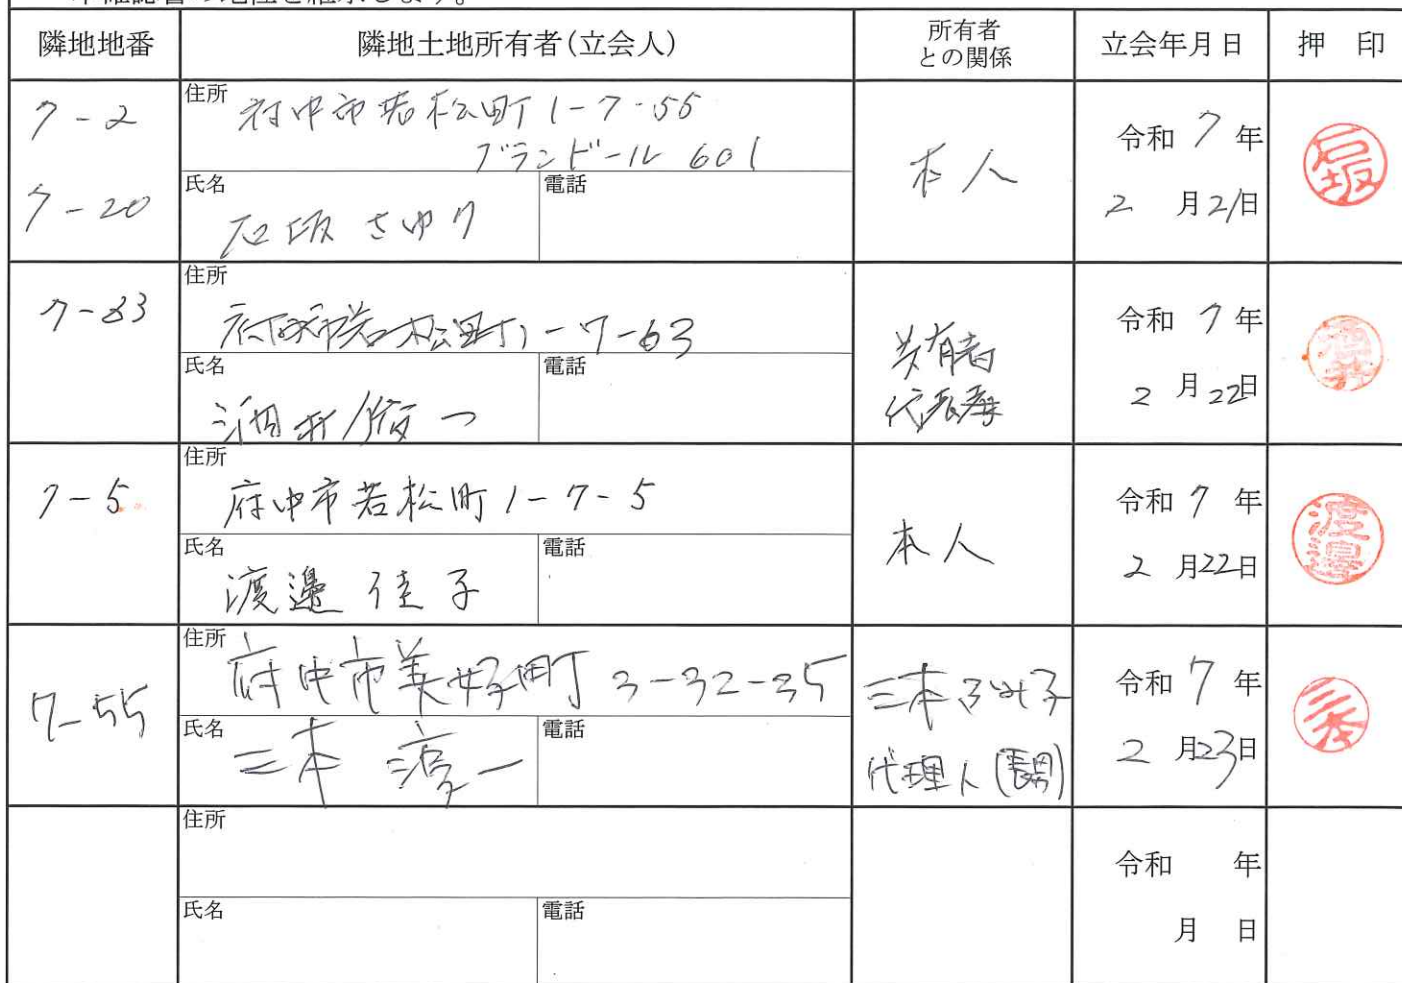 隣地地番 隣地土地所有者(立会人) 所有者との関係 立会年月日 押 印
7-2
7-20
住所 府中市若松町1-7-55
ブランドール 601
氏名 石坂 さゆり
電話
本人
令和 7 年
2 月 21 日
石坂
7-63
住所 府中市若松町1-7-63
氏名 酒井 俊一
電話
共有者
代表者
令和 7 年
2 月 22 日
酒井
7-5
住所 府中市若松町1-7-5
氏名 渡邊 佳子
電話
本人
令和 7 年
2 月 22 日
渡邊
7-55
住所 府中市美好町 3-32-35
氏名 三本 淳一
電話
三本ふみ子
代理人(長男)
令和 7 年
2 月 23 日
三本
住所
氏名
電話
令和 年
月 日